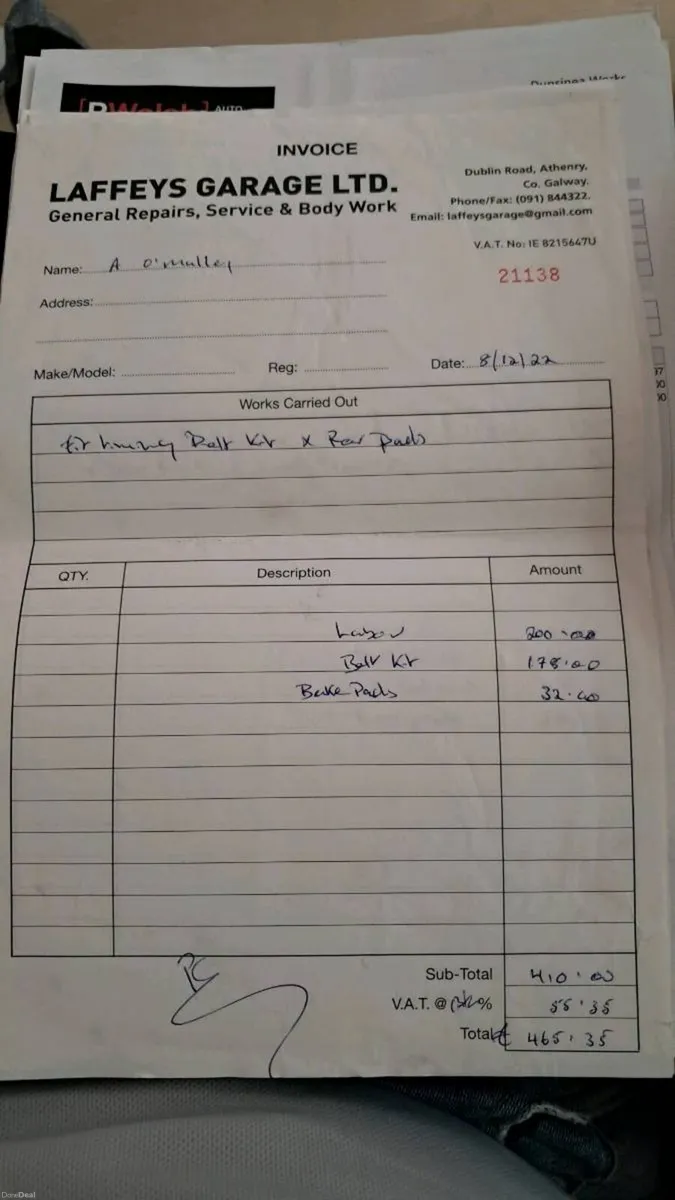 [PWalsh] AUTO
INVOICE
LAFFEYS GARAGE LTD.
General Repairs, Service & Body Work
Dublin Road, Athenry,
Co. Galway.
Phone/Fax: (091) 844322.
Email: laffeysgarage@gmail.com
V.A.T. No: IE 8215647U
21138
Name: A O'Malley
Address:
Make/Model: Reg: Date: 8/12/22
Works Carried Out
fit timing Belt Kit x Rear Pads
QTY. Description Amount
Labour 200.00
Belt Kit 178.00
Brake Pads 32.00
Sub-Total 410.00
V.A.T. @ 13½% 55.35
Total € 465.35
DoneDeal